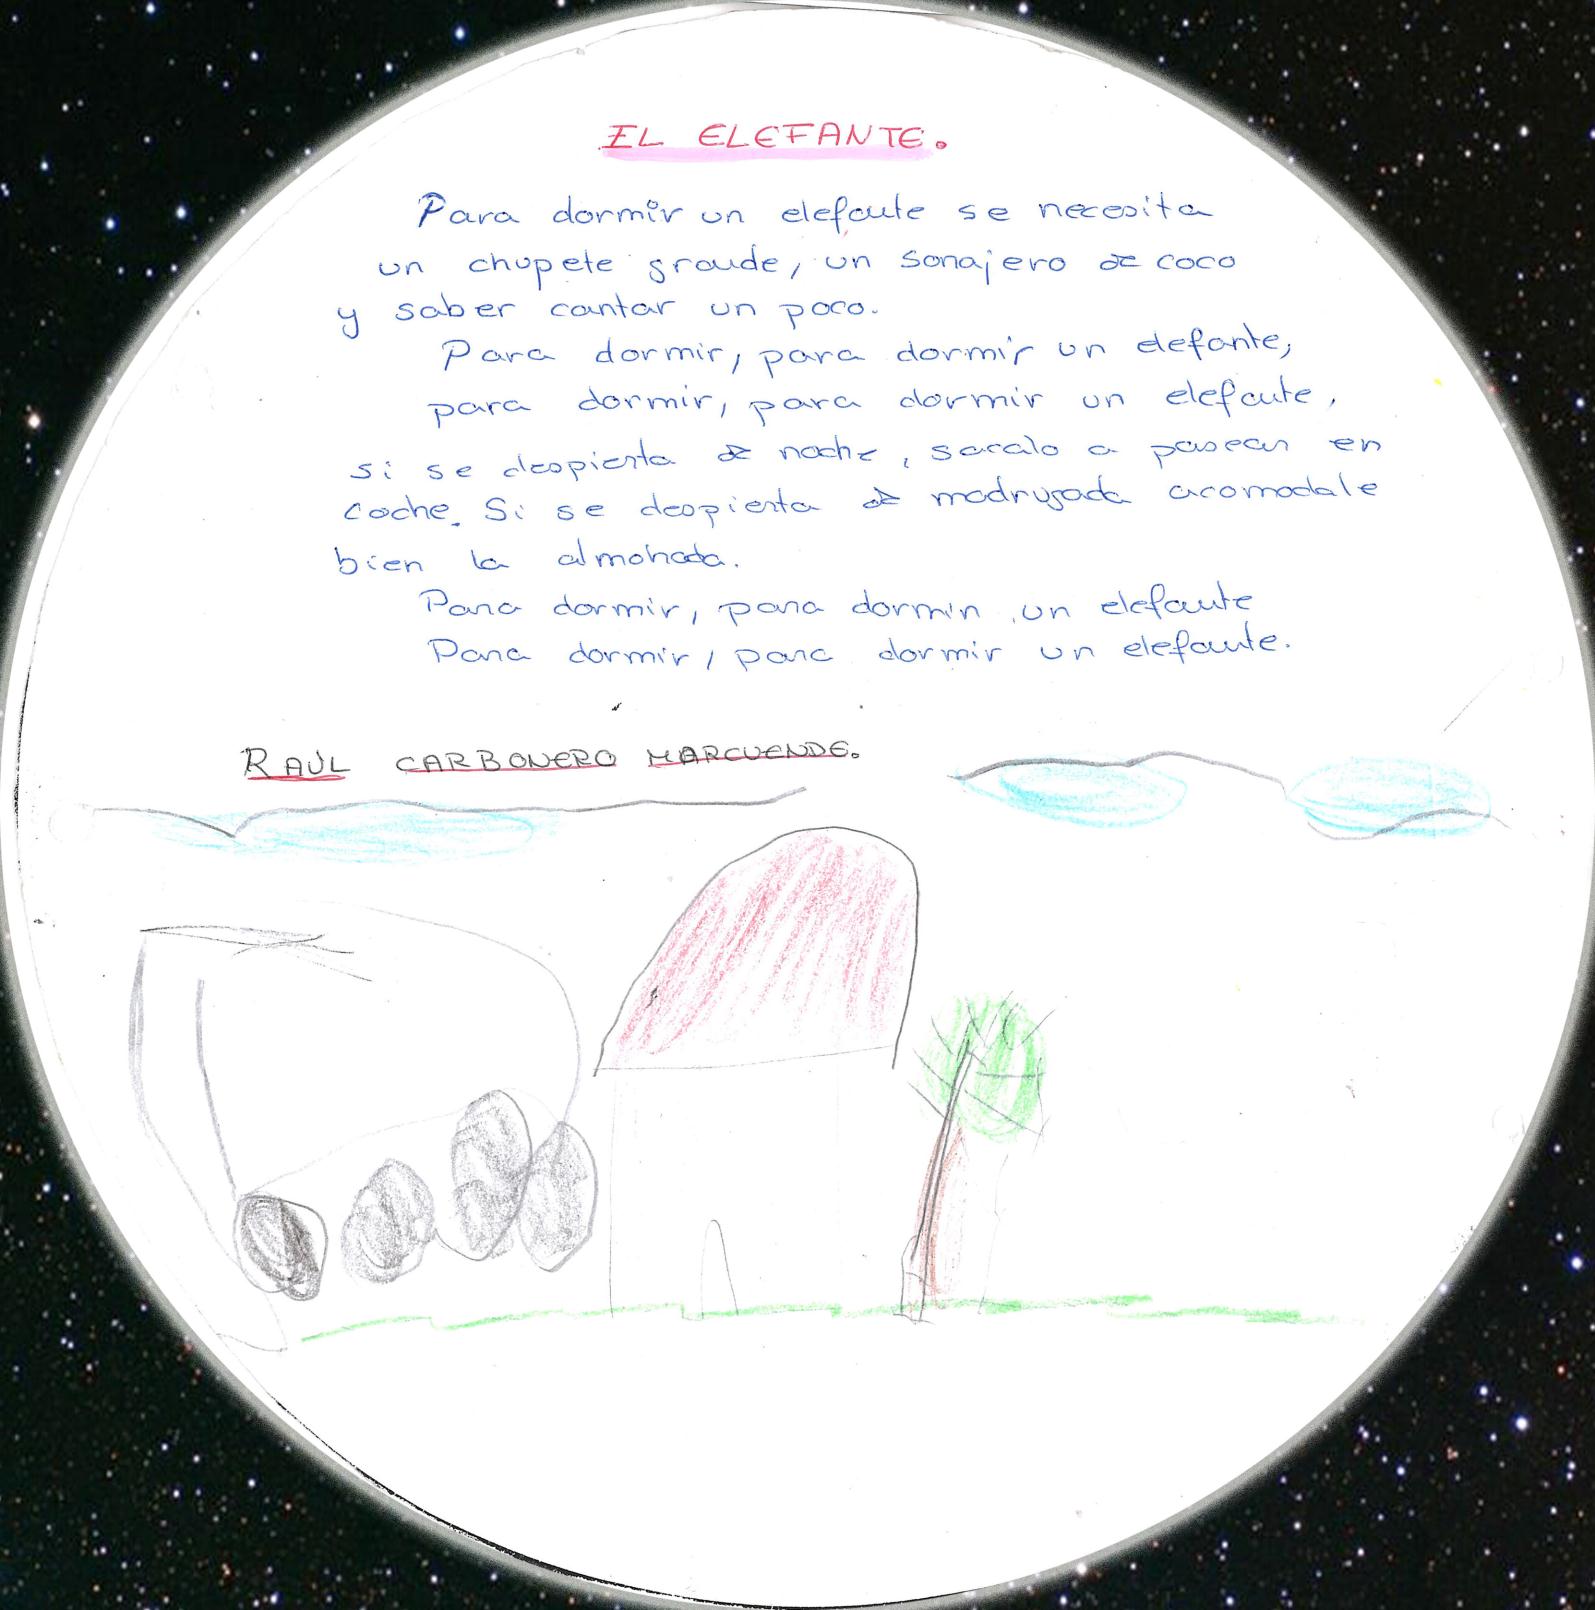 EL ELEFANTE.
Para dormir un elefante se necesita
un chupete grande, un sonajero de coco
y saber cantar un poco.
Para dormir, para dormir un elefante,
para dormir, para dormir un elefante,
si se despierta de noche, sacalo a pasear en
coche. Si se despierta de madrugada acomodale
bien la almohada.
Para dormir, para dormir un elefante
Para dormir, para dormir un elefante.
RAUL CARBONERO MARCUENDE.